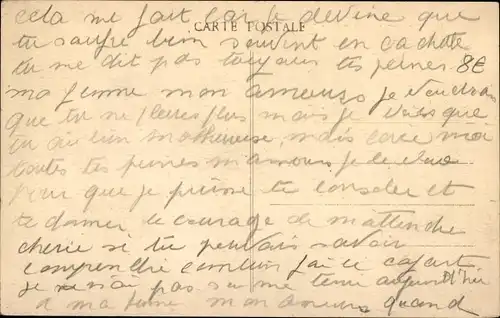 cela me fait car je devine que
CARTE POSTALE
tu souffre bien souvent en cachette
tu me dit pas toujours tes peines
8€
ma femme mon amour je voudrais
que tu ne pleures plus mais je vois que
tu es bien malheureuse, mais
toutes tes peines m'amour je
pour que je puisse te consoler et
te donner le courage de m'attendre
cherie si tu pouvais savoir
comprendre combien j'ai le cafart
je ne sais pas si me
a ma femme mon amour quand